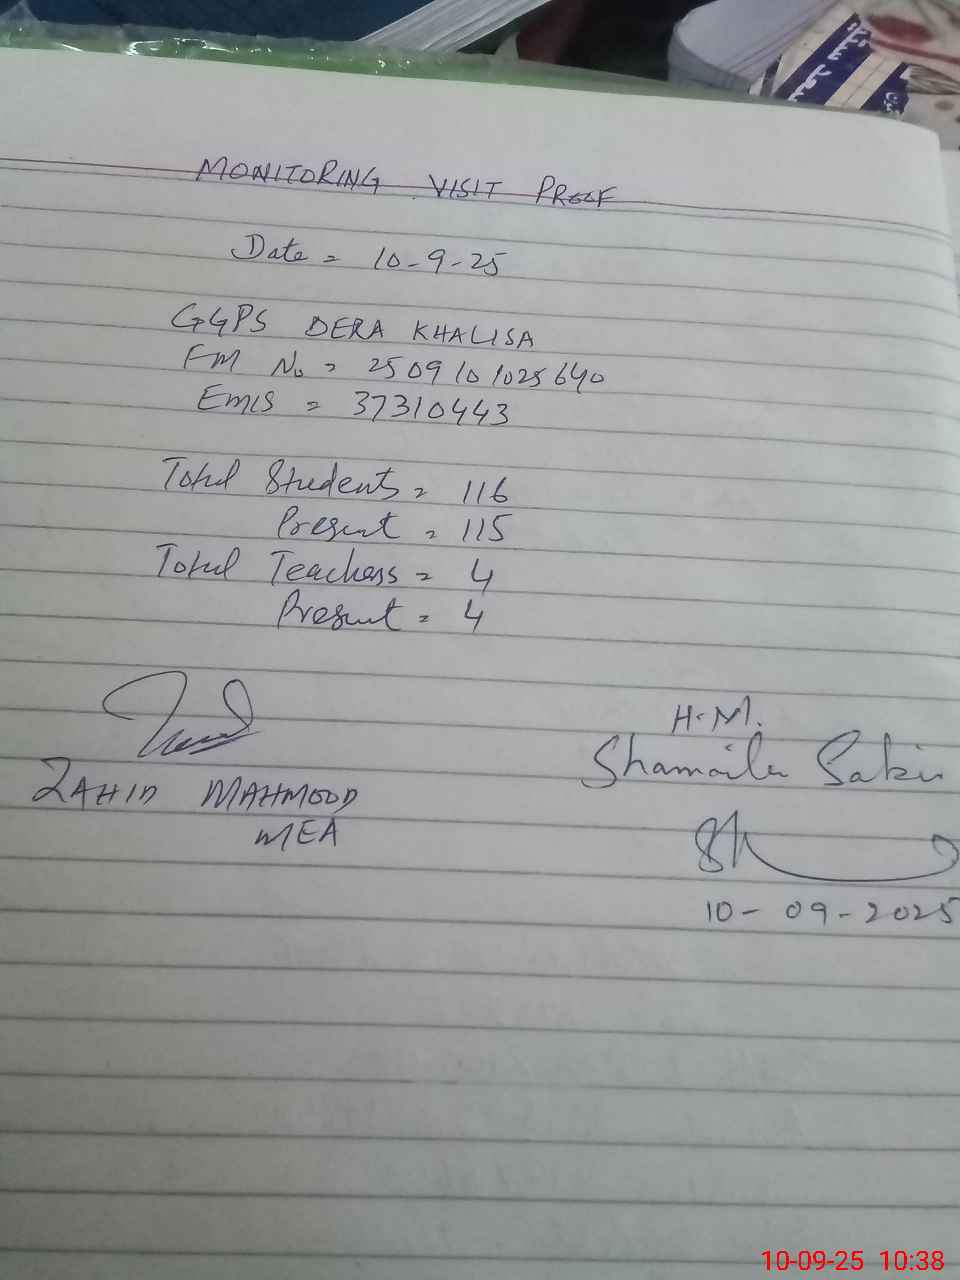 MONITORING VISIT PROOF
Date = 10-9-25
GGPS DERA KHALISA
FM No = 2509101025640
EMIS = 37310443
Total Students = 116
Present = 115
Total Teachers = 4
Present = 4
H.M.
Shamaila Sabir
ZAHID MAHMOOD
MEA
10-09-2025
10-09-25 10:38